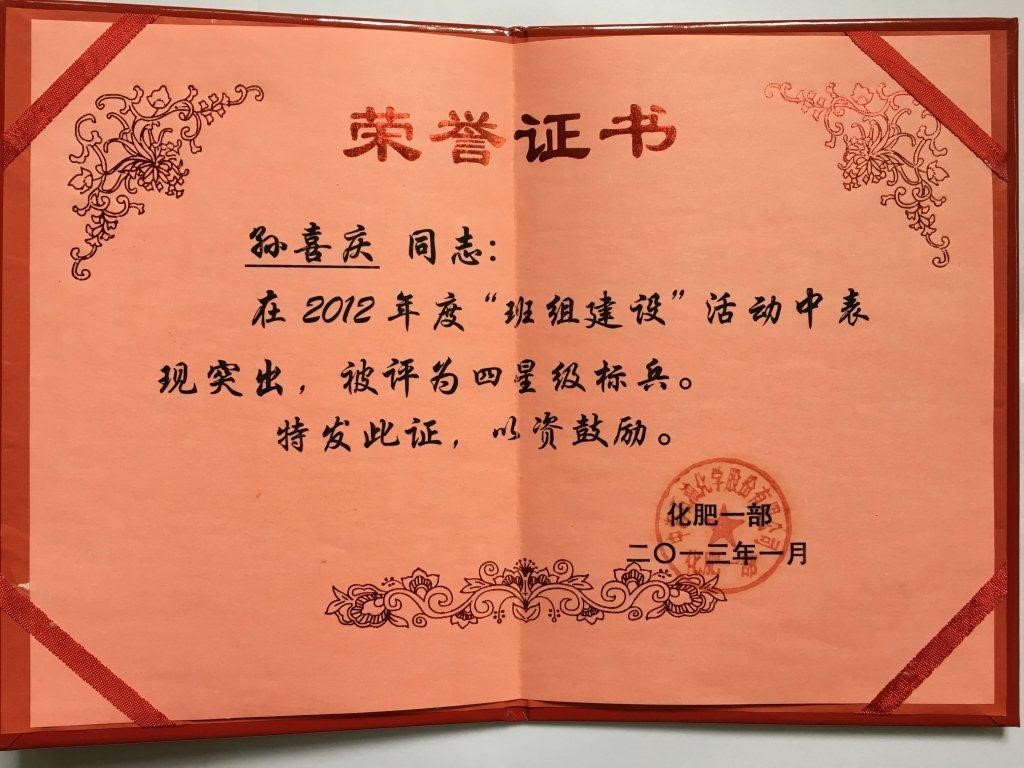 荣誉证书
孙喜庆 同志：
在2012年度“班组建设”活动中表
现突出，被评为四星级标兵。
特发此证，以资鼓励。
化肥一部
二〇一三年一月